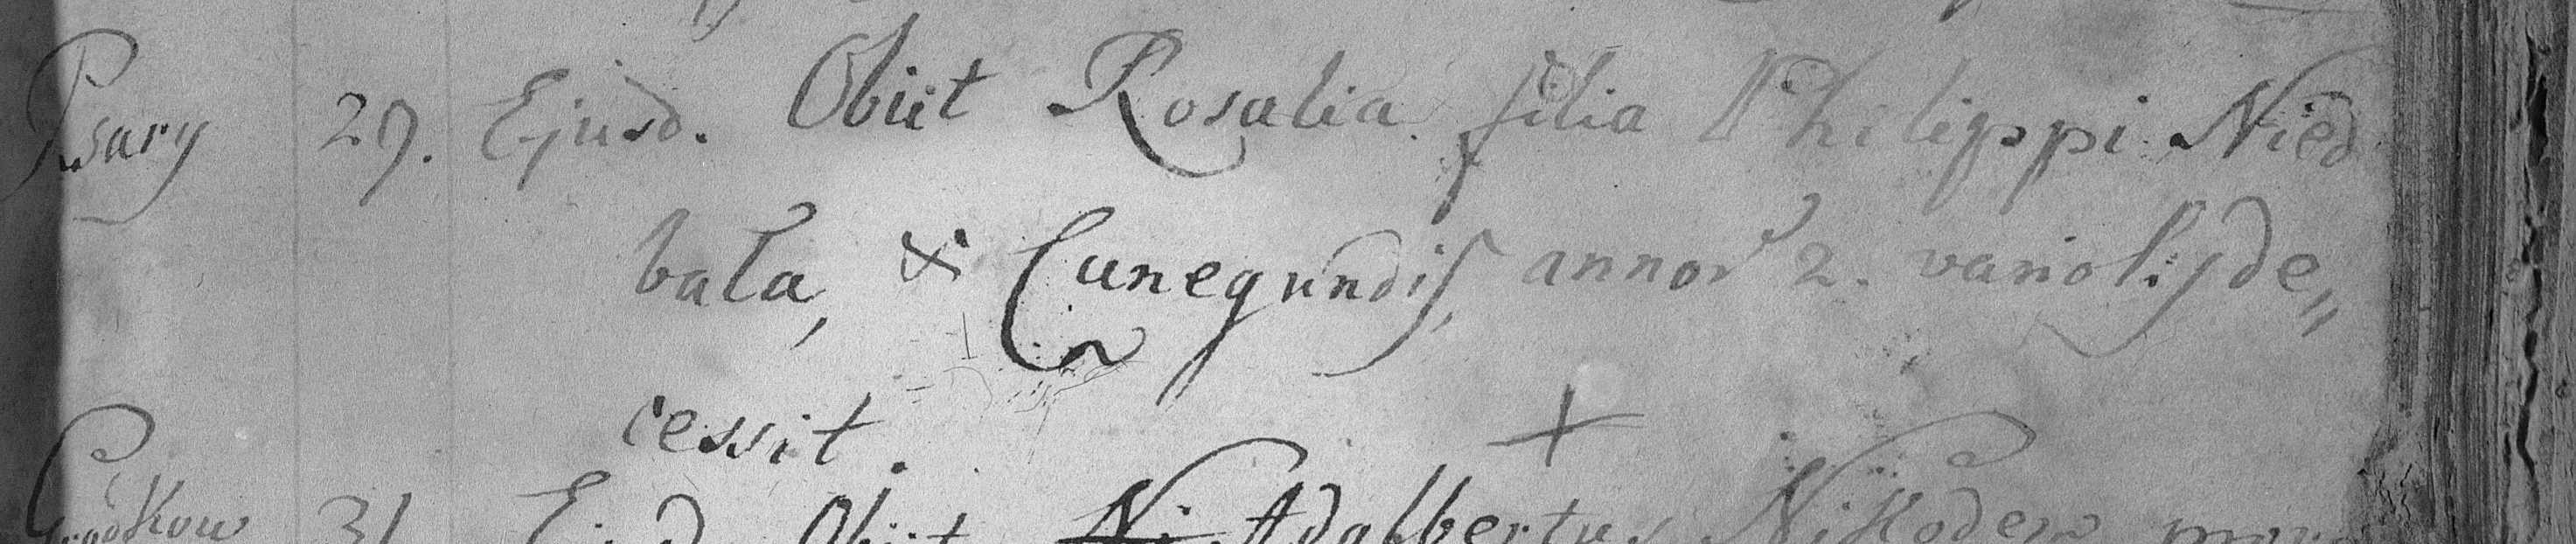 Psary 29. Ejusd. Obiit Rosalia filia Philippi Nied
bała, & Cunegundis, annor 2. variolis de„
cessit.
Grodkow 31 Ejusd. Obiit Ni Adalbertus Nikodem